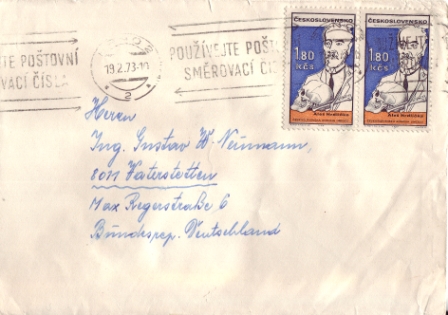 TE POŠTOVNÍ
VACÍ ČÍSLA
19.2.73-19
2
POUŽÍVEJTE POŠT
SMĚROVACÍ ČÍ
ČESKOSLOVENSKO
1,80
Kčs
Aleš Hrdlička
ČESKOSLOVENSKO
1,80
Kčs
Aleš Hrdlička
Herrn
Ing. Gustav W. Neumann,
8011 Vaterstetten
Max Regerstraße 6
Bundesrep. Deutschland